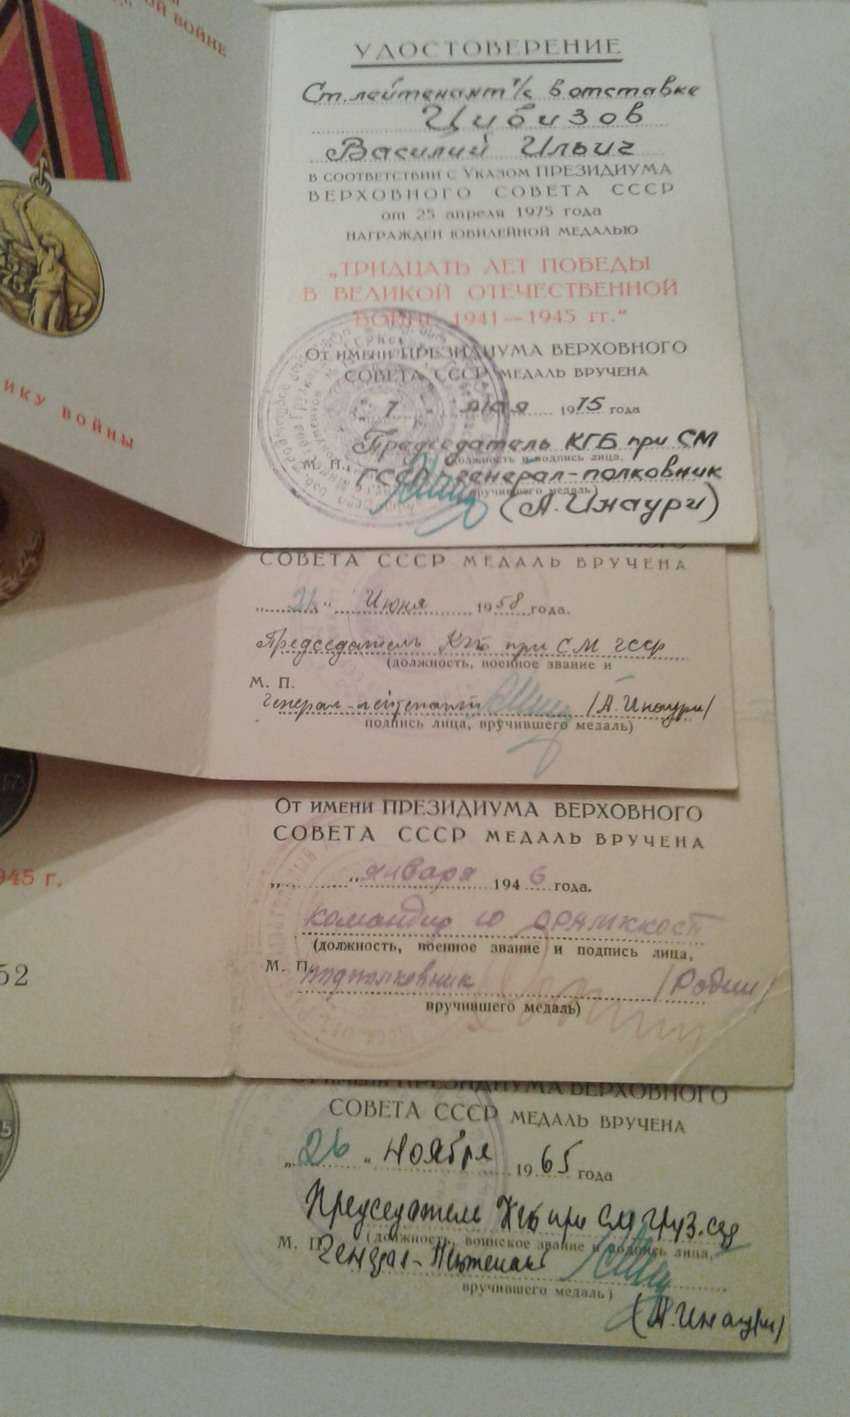 ОЙ ВОЙНЕ
ИКУ ВОЙНЫ
УДОСТОВЕРЕНИЕ
Ст. лейтенант г/б в отставке
Цибизов
Василий Ильич
В СООТВЕТСТВИИ С УКАЗОМ ПРЕЗИДИУМА
ВЕРХОВНОГО СОВЕТА СССР
от 25 апреля 1975 года
НАГРАЖДЕН ЮБИЛЕЙНОЙ МЕДАЛЬЮ
„ТРИДЦАТЬ ЛЕТ ПОБЕДЫ
В ВЕЛИКОЙ ОТЕЧЕСТВЕННОЙ
ВОЙНЕ 1941—1945 гг.“
ОТ ИМЕНИ ПРЕЗИДИУМА ВЕРХОВНОГО
СОВЕТА СССР МЕДАЛЬ ВРУЧЕНА
„7“ мая 1975 года
Председатель КГБ при СМ
должность и подпись лица,
М. П. ГССР генерал-полковник
вручившего медаль)
(А. Инаури)
СОВЕТА СССР МЕДАЛЬ ВРУЧЕНА
„21“ Июня 1958 года.
Председатель КГБ при СМ ГССР
(должность, военное звание и
М. П.
Генерал-лейтенант /А. Инаури/
подпись лица, вручившего медаль)
945 г.
52
ОТ ИМЕНИ ПРЕЗИДИУМА ВЕРХОВНОГО
СОВЕТА СССР МЕДАЛЬ ВРУЧЕНА
„ “ января 1946 года.
командир 10
(должность, военное звание и подпись лица,
М. П. подполковник /Родин/
вручившего медаль)
ОТ ИМЕНИ ПРЕЗИДИУМА ВЕРХОВНОГО
СОВЕТА СССР МЕДАЛЬ ВРУЧЕНА
„26“ ноября 1965 года
Председатель КГБ при СМ Груз. ССР
(должность, воинское звание и подпись лица,
М. П. Генерал-Лейтенант
вручившего медаль)
(А. Инаури)